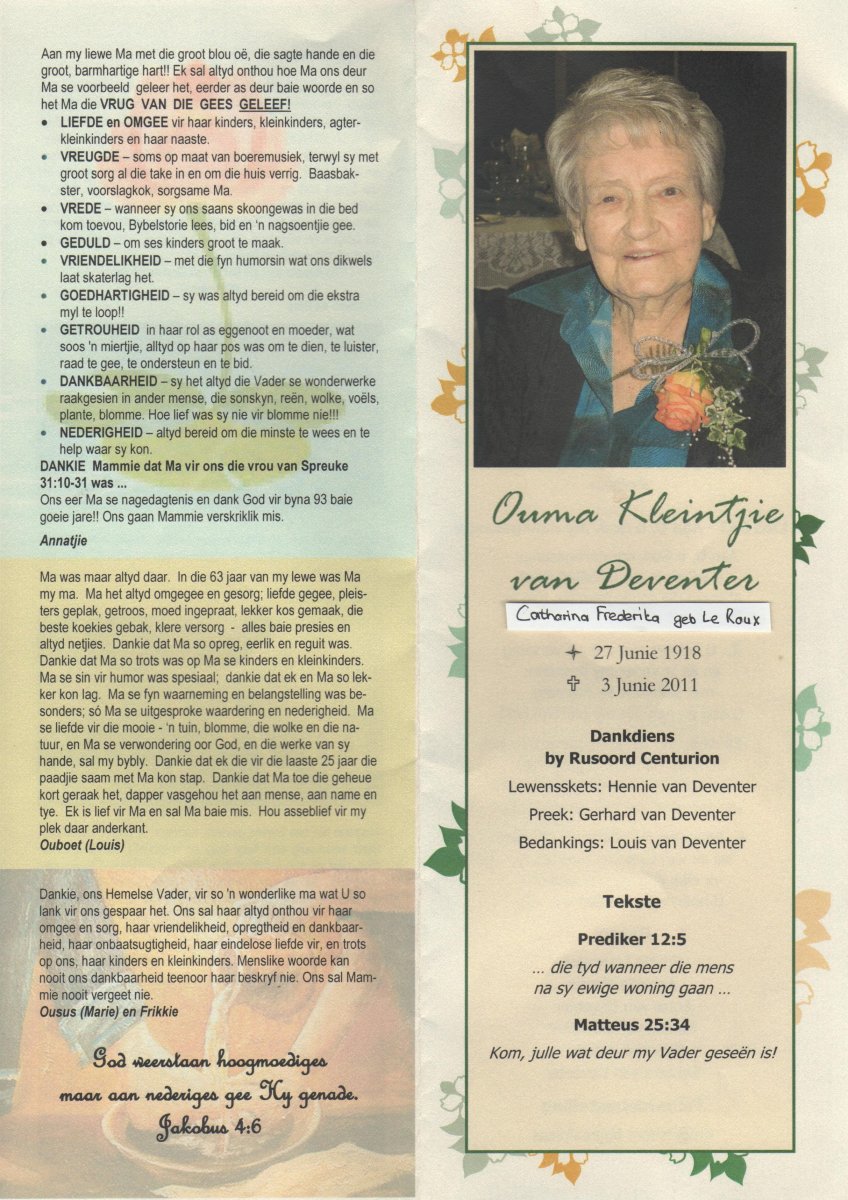 Aan my liewe Ma met die groot blou oë, die sagte hande en die
groot, barmhartige hart!! Ek sal altyd onthou hoe Ma ons deur
Ma se voorbeeld geleer het, eerder as deur baie woorde en so
het Ma die VRUG VAN DIE GEES GELEEF!
• LIEFDE en OMGEE vir haar kinders, kleinkinders, agter-
kleinkinders en haar naaste.
• VREUGDE – soms op maat van boeremusiek, terwyl sy met
groot sorg al die take in en om die huis verrig. Baasbak-
ster, voorslagkok, sorgsame Ma.
• VREDE – wanneer sy ons saans skoongewas in die bed
kom toevou, Bybelstorie lees, bid en 'n nagsoentjie gee.
• GEDULD – om ses kinders groot te maak.
• VRIENDELIKHEID – met die fyn humorsin wat ons dikwels
laat skaterlag het.
• GOEDHARTIGHEID – sy was altyd bereid om die ekstra
myl te loop!!
• GETROUHEID in haar rol as eggenoot en moeder, wat
soos 'n miertjie, alltyd op haar pos was om te dien, te luister,
raad te gee, te ondersteun en te bid.
• DANKBAARHEID – sy het altyd die Vader se wonderwerke
raakgesien in ander mense, die sonskyn, reën, wolke, voëls,
plante, blomme. Hoe lief was sy nie vir blomme nie!!!
• NEDERIGHEID – altyd bereid om die minste te wees en te
help waar sy kon.
DANKIE Mammie dat Ma vir ons die vrou van Spreuke
31:10-31 was ...
Ons eer Ma se nagedagtenis en dank God vir byna 93 baie
goeie jare!! Ons gaan Mammie verskriklik mis.
Annatjie
Ma was maar altyd daar. In die 63 jaar van my lewe was Ma
my ma. Ma het altyd omgegee en gesorg; liefde gegee, pleis-
ters geplak, getroos, moed ingepraat, lekker kos gemaak, die
beste koekies gebak, klere versorg - alles baie presies en
altyd netjies. Dankie dat Ma so opreg, eerlik en reguit was.
Dankie dat Ma so trots was op Ma se kinders en kleinkinders.
Ma se sin vir humor was spesiaal; dankie dat ek en Ma so lek-
ker kon lag. Ma se fyn waarneming en belangstelling was be-
sonders; só Ma se uitgesproke waardering en nederigheid. Ma
se liefde vir die mooie - 'n tuin, blomme, die wolke en die na-
tuur, en Ma se verwondering oor God, en die werke van sy
hande, sal my bybly. Dankie dat ek die vir die laaste 25 jaar die
paadjie saam met Ma kon stap. Dankie dat Ma toe die geheue
kort geraak het, dapper vasgehou het aan mense, aan name en
tye. Ek is lief vir Ma en sal Ma baie mis. Hou asseblief vir my
plek daar anderkant.
Ouboet (Louis)
Dankie, ons Hemelse Vader, vir so 'n wonderlike ma wat U so
lank vir ons gespaar het. Ons sal haar altyd onthou vir haar
omgee en sorg, haar vriendelikheid, opregtheid en dankbaar-
heid, haar onbaatsugtigheid, haar eindelose liefde vir, en trots
op ons, haar kinders en kleinkinders. Menslike woorde kan
nooit ons dankbaarheid teenoor haar beskryf nie. Ons sal Mam-
mie nooit vergeet nie.
Ousus (Marie) en Frikkie
God weerstaan hoogmoediges
maar aan nederiges gee Hy genade.
Jakobus 4:6
Ouma Kleintjie
van Deventer
Catharina Frederika geb Le Roux
27 Junie 1918
3 Junie 2011
Dankdiens
by Rusoord Centurion
Lewensskets: Hennie van Deventer
Preek: Gerhard van Deventer
Bedankings: Louis van Deventer
Tekste
Prediker 12:5
... die tyd wanneer die mens
na sy ewige woning gaan ...
Matteus 25:34
Kom, julle wat deur my Vader geseën is!